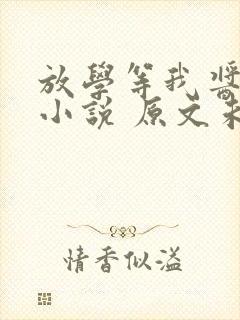 放學等我 醬
小說 原文未
情香似溢